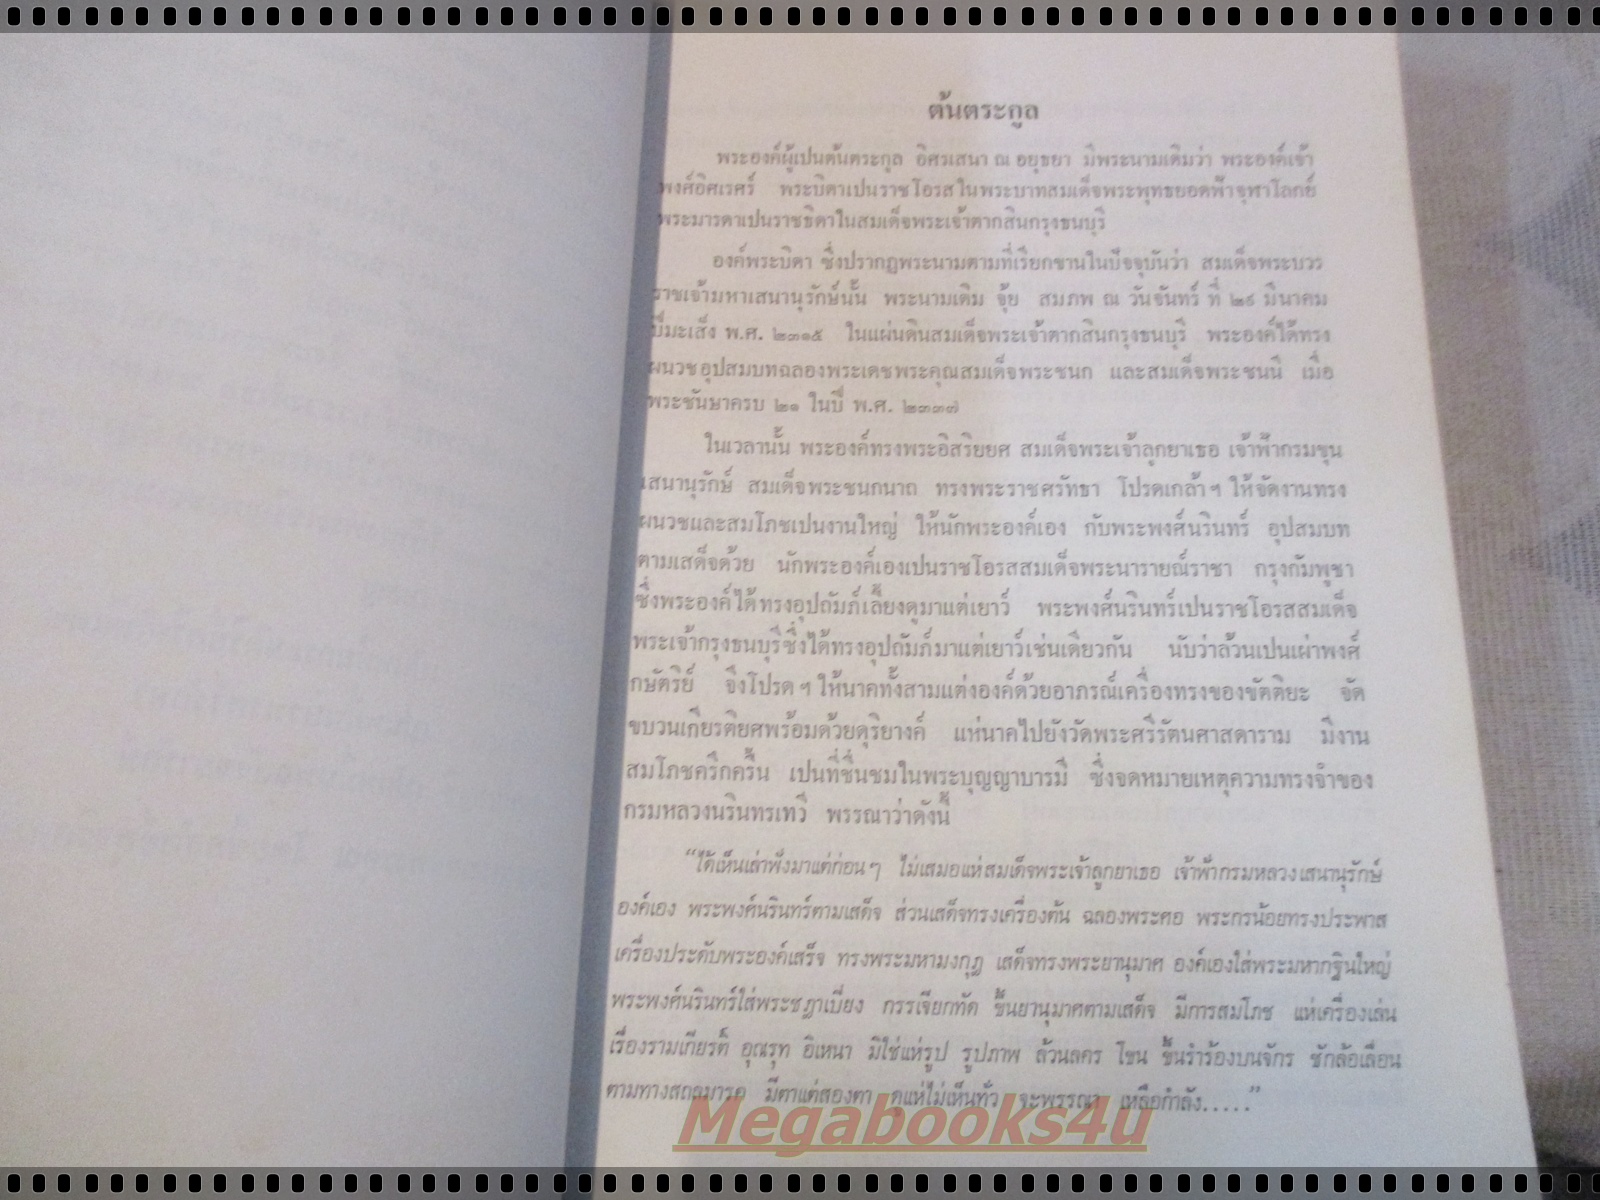 ต้นตระกูล
พระองค์ผู้เปนต้นตระกูล อิศรเสนา ณ อยุธยา มีพระนามเดิมว่า พระองค์เจ้า
พงศ์อิศเรศร์ พระบิดาเปนราชโอรสในพระบาทสมเด็จพระพุทธยอดฟ้าจุฬาโลกย์
พระมารดาเปนราชธิดาในสมเด็จพระเจ้าตากสินกรุงธนบุรี
องค์พระบิดา ซึ่งปรากฏพระนามตามที่เรียกขานในปัจจุบันว่า สมเด็จพระบวร
ราชเจ้ามหาเสนานุรักษ์นั้น พระนามเดิม จุ้ย สมภพ ณ วันจันทร์ ที่ ๒๙ มีนาคม
ปีมะเส็ง พ.ศ. ๒๓๑๕ ในแผ่นดินสมเด็จพระเจ้าตากสินกรุงธนบุรี พระองค์ได้ทรง
ผนวชอุปสมบทฉลองพระเดชพระคุณสมเด็จพระชนก และสมเด็จพระชนนี เมื่อ
พระชันษาครบ ๒๑ ในปี พ.ศ. ๒๓๓๗
ในเวลานั้น พระองค์ทรงพระอิสริยยศ สมเด็จพระเจ้าลูกยาเธอ เจ้าฟ้ากรมขุน
เสนานุรักษ์ สมเด็จพระชนกนาถ ทรงพระราชศรัทธา โปรดเกล้าฯ ให้จัดงานทรง
ผนวชและสมโภชเปนงานใหญ่ ให้นักพระองค์เอง กับพระพงศ์นรินทร์ อุปสมบท
ตามเสด็จด้วย นักพระองค์เองเปนราชโอรสสมเด็จพระนารายณ์ราชา กรุงกัมพูชา
ซึ่งพระองค์ได้ทรงอุปถัมภ์เลี้ยงดูมาแต่เยาว์ พระพงศ์นรินทร์เปนราชโอรสสมเด็จ
พระเจ้ากรุงธนบุรีซึ่งได้ทรงอุปถัมภ์มาแต่เยาว์เช่นเดียวกัน นับว่าล้วนเปนเผ่าพงศ์
กษัตริย์ จึงโปรดฯ ให้นาคทั้งสามแต่งองค์ด้วยอาภรณ์เครื่องทรงของขัตติยะ จัด
ขบวนเกียรติยศพร้อมด้วยดุริยางค์ แห่นาคไปยังวัดพระศรีรัตนศาสดาราม มีงาน
สมโภชครึกครื้น เปนที่ชื่นชมในพระบุญญาบารมี ซึ่งจดหมายเหตุความทรงจำของ
กรมหลวงนรินทรเทวี พรรณาว่าดังนี้
“ได้เห็นเล่าฟังมาแต่ก่อนๆ ไม่เสมอแห่สมเด็จพระเจ้าลูกยาเธอ เจ้าฟ้ากรมหลวงเสนานุรักษ์
องค์เอง พระพงศ์นรินทร์ตามเสด็จ ส่วนเสด็จทรงเครื่องต้น ฉลองพระศอ พระกรน้อยทรงประพาส
เครื่องประดับพระองค์เสร็จ ทรงพระมหามงกุฎ เสด็จทรงพระยานุมาศ องค์เองใส่พระมหากฐินใหญ่
พระพงศ์นรินทร์ใส่พระชฎาเบี่ยง กรรเจียกทัด ขึ้นยานุมาศตามเสด็จ มีการสมโภช แห่เครื่องเล่น
เรื่องรามเกียรติ์ อุณรุท อิเหนา มิใช่แห่รูป รูปภาพ ล้วนลคร โขน ขึ้นรำร้องบนจักร ชักล้อเลื่อน
ตามทางสถลมารค มีตาแต่สองตา ดูแห่ไม่เห็นทั่ว จะพรรณา เหลือกำลัง.....”
Megabooks4u